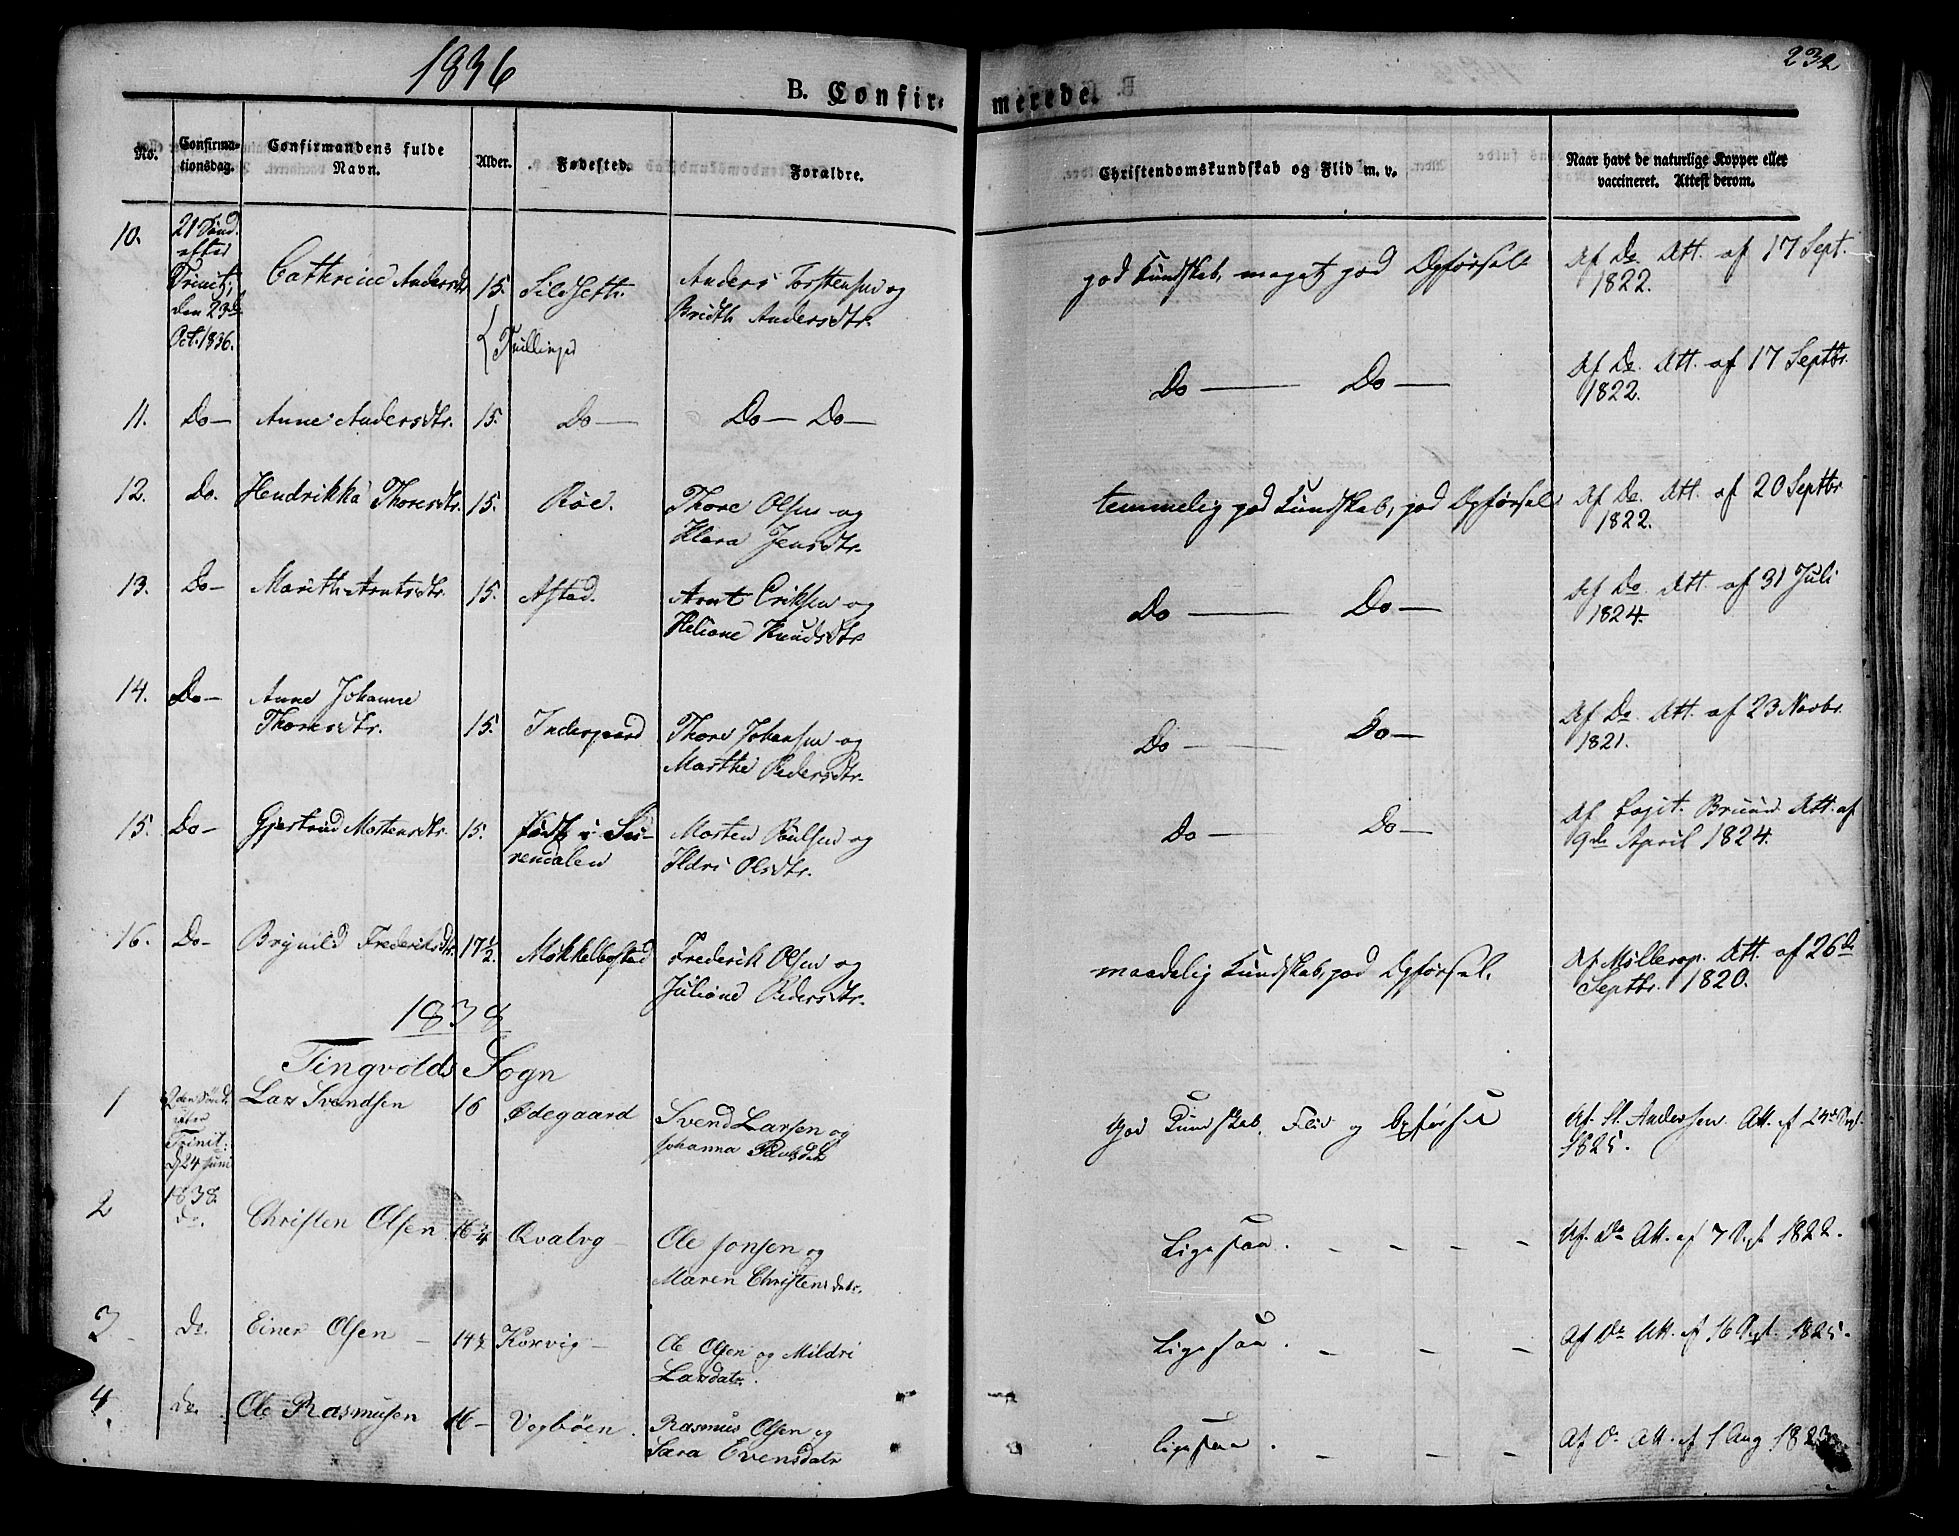 1836
232
B. Confirmerede.
No.
Confirmationsdag.
Confirmandens fulde Navn.
Alder.
Fødested.
Forældre.
Christendomskundskab og Flid m. v.
Naar havt de naturlige Kopper eller vaccineret. Attest derom.
10. 21 Sønd. efter Trinit., den 23de Oct. 1836. Cathrine Andersdtr 15. Sildseth. Anders Torstensen og Brith Andersdtr. god Kundskab, meget god Opførsel Af Do. Att. af 17 Sept. 1822.
{Tvillinger
11. Do— Anne Andersdtr. 15. Do— Do— Do— Do— Do— Af Do. Att. af 17 Septbr. 1822.
12. Do. Hendrikka Thoresdtr. 15. Röe. Thore Olsen og Klara Jensdtr. temmelig god Kundskab, god Opførsel Af Do. Att. af 20 Septbr 1822.
13. Do— Marith Arntsdtr. 15. Afstad. Arnt Eriksen og Heliane Knudsdtr Do— Do— Af Do. Att. af 31 Juli 1824.
14. Do— Anne Johanne Thoresdtr. 15. Indergaard Thore Johansen og Marthe Pedersdtr. Do— Do— Af Do Att. af 23 Novbr. 1821.
15. Do— Gjertrud Mortensdtr. 15. født i Surendalen Morten Poulsen og Ildri Olsdtr. Do— Do— Af Bruun Att. af 9de April 1824.
16. Do— Brynild Frederiksdtr. 17½ Mökkelbostad Frederik Olsen og Juliane Pedersdtr. maadelig Kundskab, god Opførsel. Af Møllerop. Att. af 26de Septbr. 1820.
1838
Tingvolds Sogn
1 2den Sönd. efter Trinit. d 24 Juni 1838. Lars Svendsen 16 Ødegaard Svend Larsen og Johanna God Kundskab, Flid og Opførsel Af St. Andersen Att. af 24de 1825.
2 do. Christen Olsen 16¾ Qvalvg— Ole Jonsen og Maren Christensdatr. Ligesaa. — — — — Af Do Att. af 7 Sept 1822.
3 do. Einer Olsen — 14½ Korvig— Ole Olsen og Mildri Larsdatr. Ligesaa. — — — Af Do Att. af 16 Sept. 1825.
4. do. Ole Rasmusen 16— Vogböen. Rasmus Olsen og Sara Evensdatr Ligesaa. — — — Af Do Att. af 1 Aug 1823